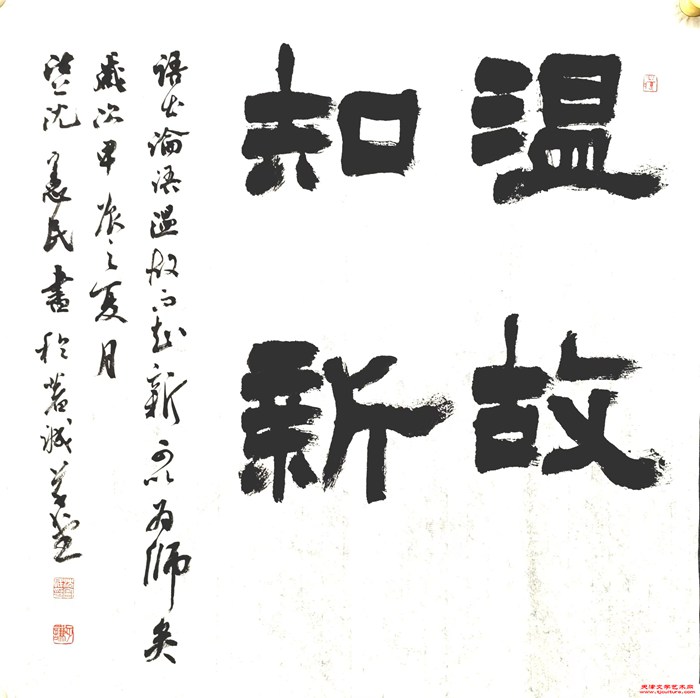 温故
知新
语出论语温故而知新可以为师矣
岁次甲辰之夏月
沈惠民书于蓉城
天津文学艺术网